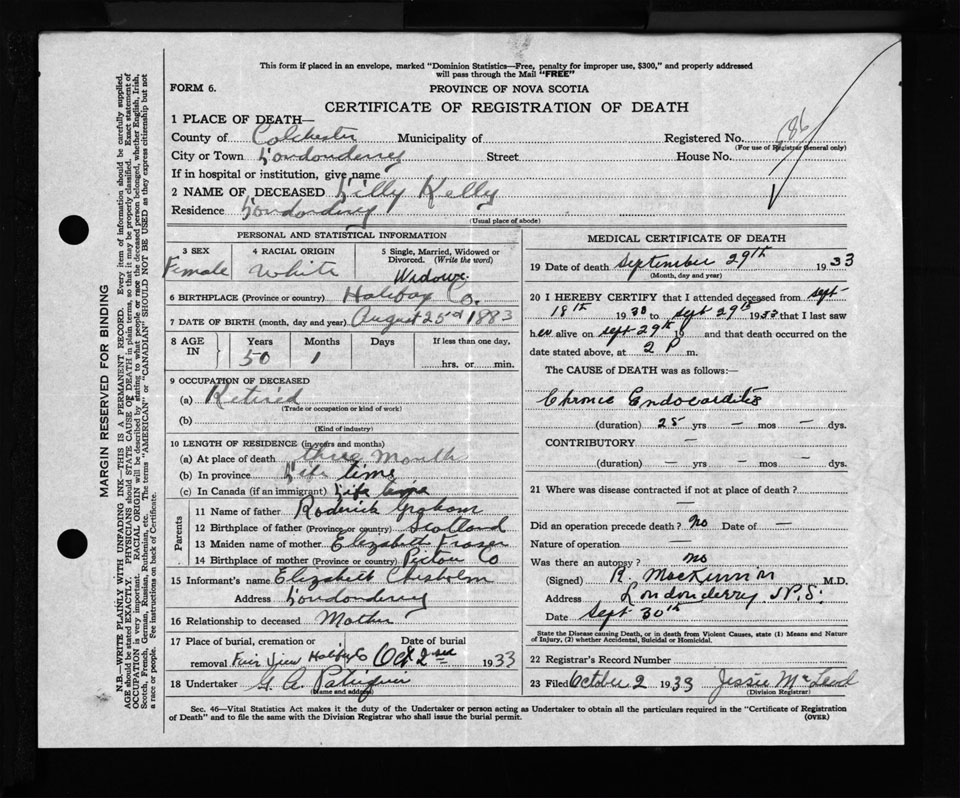 This form if placed in an envelope, marked "Dominion Statistics—Free, penalty for improper use, $300," and properly addressed
will pass through the Mail "FREE"
FORM 6.
PROVINCE OF NOVA SCOTIA
CERTIFICATE OF REGISTRATION OF DEATH
1 PLACE OF DEATH—
County of Colchester Municipality of Registered No. 686
(For use of Registrar General only)
City or Town Londonderry Street House No.
If in hospital or institution, give name
2 NAME OF DECEASED Lilly Kelly
Residence Londonderry
(Usual place of abode)
PERSONAL AND STATISTICAL INFORMATION
3 SEX 4 RACIAL ORIGIN 5 Single, Married, Widowed or
Divorced. (Write the word)
Female White Widow
6 BIRTHPLACE (Province or country) Halifax Co.
7 DATE OF BIRTH (month, day and year) August 25th 1883
8 AGE IN Years Months Days If less than one day,
50 1 hrs. or min.
9 OCCUPATION OF DECEASED
(a) Retired
(Trade or occupation or kind of work)
(b)
(Kind of industry)
10 LENGTH OF RESIDENCE (in years and months)
(a) At place of death three Month
(b) In province Life time
(c) In Canada (if an immigrant) Life time
Parents
11 Name of father Roderick Graham
12 Birthplace of father (Province or country) Scotland
13 Maiden name of mother Elizabeth Fraser
14 Birthplace of mother (Province or country) Pictou Co
15 Informant's name Elizabeth Chisholm
Address Londonderry
16 Relationship to deceased Mother
17 Place of burial, cremation or Date of burial
removal Fair View Halifax Co Oct 2nd 1933
18 Undertaker G. A.
(Name and address)
MEDICAL CERTIFICATE OF DEATH
19 Date of death September 29th 1933
(Month, day and year)
20 I HEREBY CERTIFY that I attended deceased from Sept
18th 1930 to Sept 29th 1933 that I last saw
her alive on Sept 29th 19 and that death occurred on the
date stated above, at 2 P m.
The CAUSE of DEATH was as follows:—
Chronic Endocarditis
(duration) 25 yrs — mos — dys.
CONTRIBUTORY —
(duration) — yrs — mos — dys.
21 Where was disease contracted if not at place of death?
—
Did an operation precede death? no Date of —
Nature of operation —
Was there an autopsy? no
(Signed) R. MacKinnon M.D.
Address Londonderry N.S.
Date Sept 30th
State the Disease causing Death, or in death from Violent Causes, state (1) Means and Nature
of Injury, (2) whether Accidental, Suicidal or Homicidal.
22 Registrar's Record Number
23 Filed October 2 1933 Jessie
(Division Registrar)
Sec. 46—Vital Statistics Act makes it the duty of the Undertaker or person acting as Undertaker to obtain all the particulars required in the "Certificate of Registration
of Death" and to file the same with the Division Registrar who shall issue the burial permit.
(OVER)
MARGIN RESERVED FOR BINDING
N.B.—WRITE PLAINLY WITH UNFADING INK—THIS IS A PERMANENT RECORD. Every item of information should be carefully supplied.
AGE should be stated EXACTLY. PHYSICIANS should STATE CAUSE OF DEATH in plain terms, so that it may be properly classified. Exact statement of
OCCUPATION is very important. RACIAL ORIGIN will be described by stating to what people or race the deceased person belonged, whether English, Irish,
Scotch, French, German, Russian, Ruthenian, etc. The terms "AMERICAN" or "CANADIAN" SHOULD NOT BE USED as they express citizenship but not
a race or people. See instructions on back of Certificate.